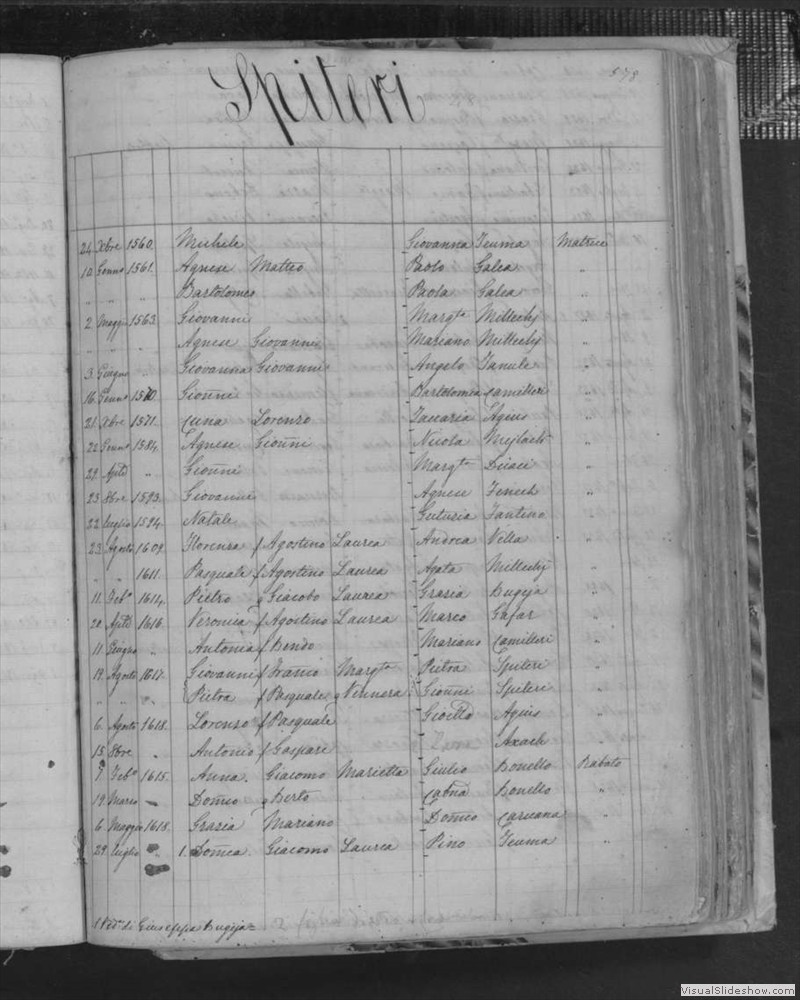 578
Spiteri
24 Xbre 1560. Michele Giovanna Teuma Matrice
10 Genno 1561. Agnese Matteo Paolo Galea "
" " " Bartolomeo Paola Galea "
2 Maggio 1563. Giovanni Margta Mittechj "
" " " Agnese Giovanni Mariano Mittechj "
3 Giugno " Giovanna Giovanni Angelo "
16 Genno 1570. Gionni Bartolomea Camilleri "
21 Xbre 1571. Lorenzo Zaccaria Agius "
22 Genno 1584. Agnese Gionni Nicola "
29 Aple " Gionni Margta "
23 8bre 1593. Giovanni Agnese Fenech "
22 luglio 1594. Natale Gutusia "
23 Agosto 1609. Florenza f Agostino Laurea Andrea Villa "
" " 1611. Pasquale f Agostino Laurea Agata Mittechj "
11 Febo 1614. Pietro g Giacobo Laurea Grazia Bugeja "
20 Aple 1616. Veronica f Agostino Laurea Marco Gafar "
11 Giugno " Antonia f Bendo Mariano Camilleri "
19 Agosto 1617. Giovanni f Margta Pietra Spiteri "
" " " Pietra f Pasquale g Vennera Gionni Spiteri "
6 Agosto 1618. Lorenzo f Pasquale Agius "
15 8bre " Antonio f Gaspare Axach "
7 Febo 1615. Anna Giacomo Marietta Giulio Bonello Rabato
19 Marzo Domco g Berto Catna Bonello "
6 Maggio 1618. Grazia Mariano Domco Caruana "
29 luglio " 1. Domca Giacomo Laurea Pino Teuma "
1 Veda di Giuseppe Bugeja =
VisualSlideshow.com